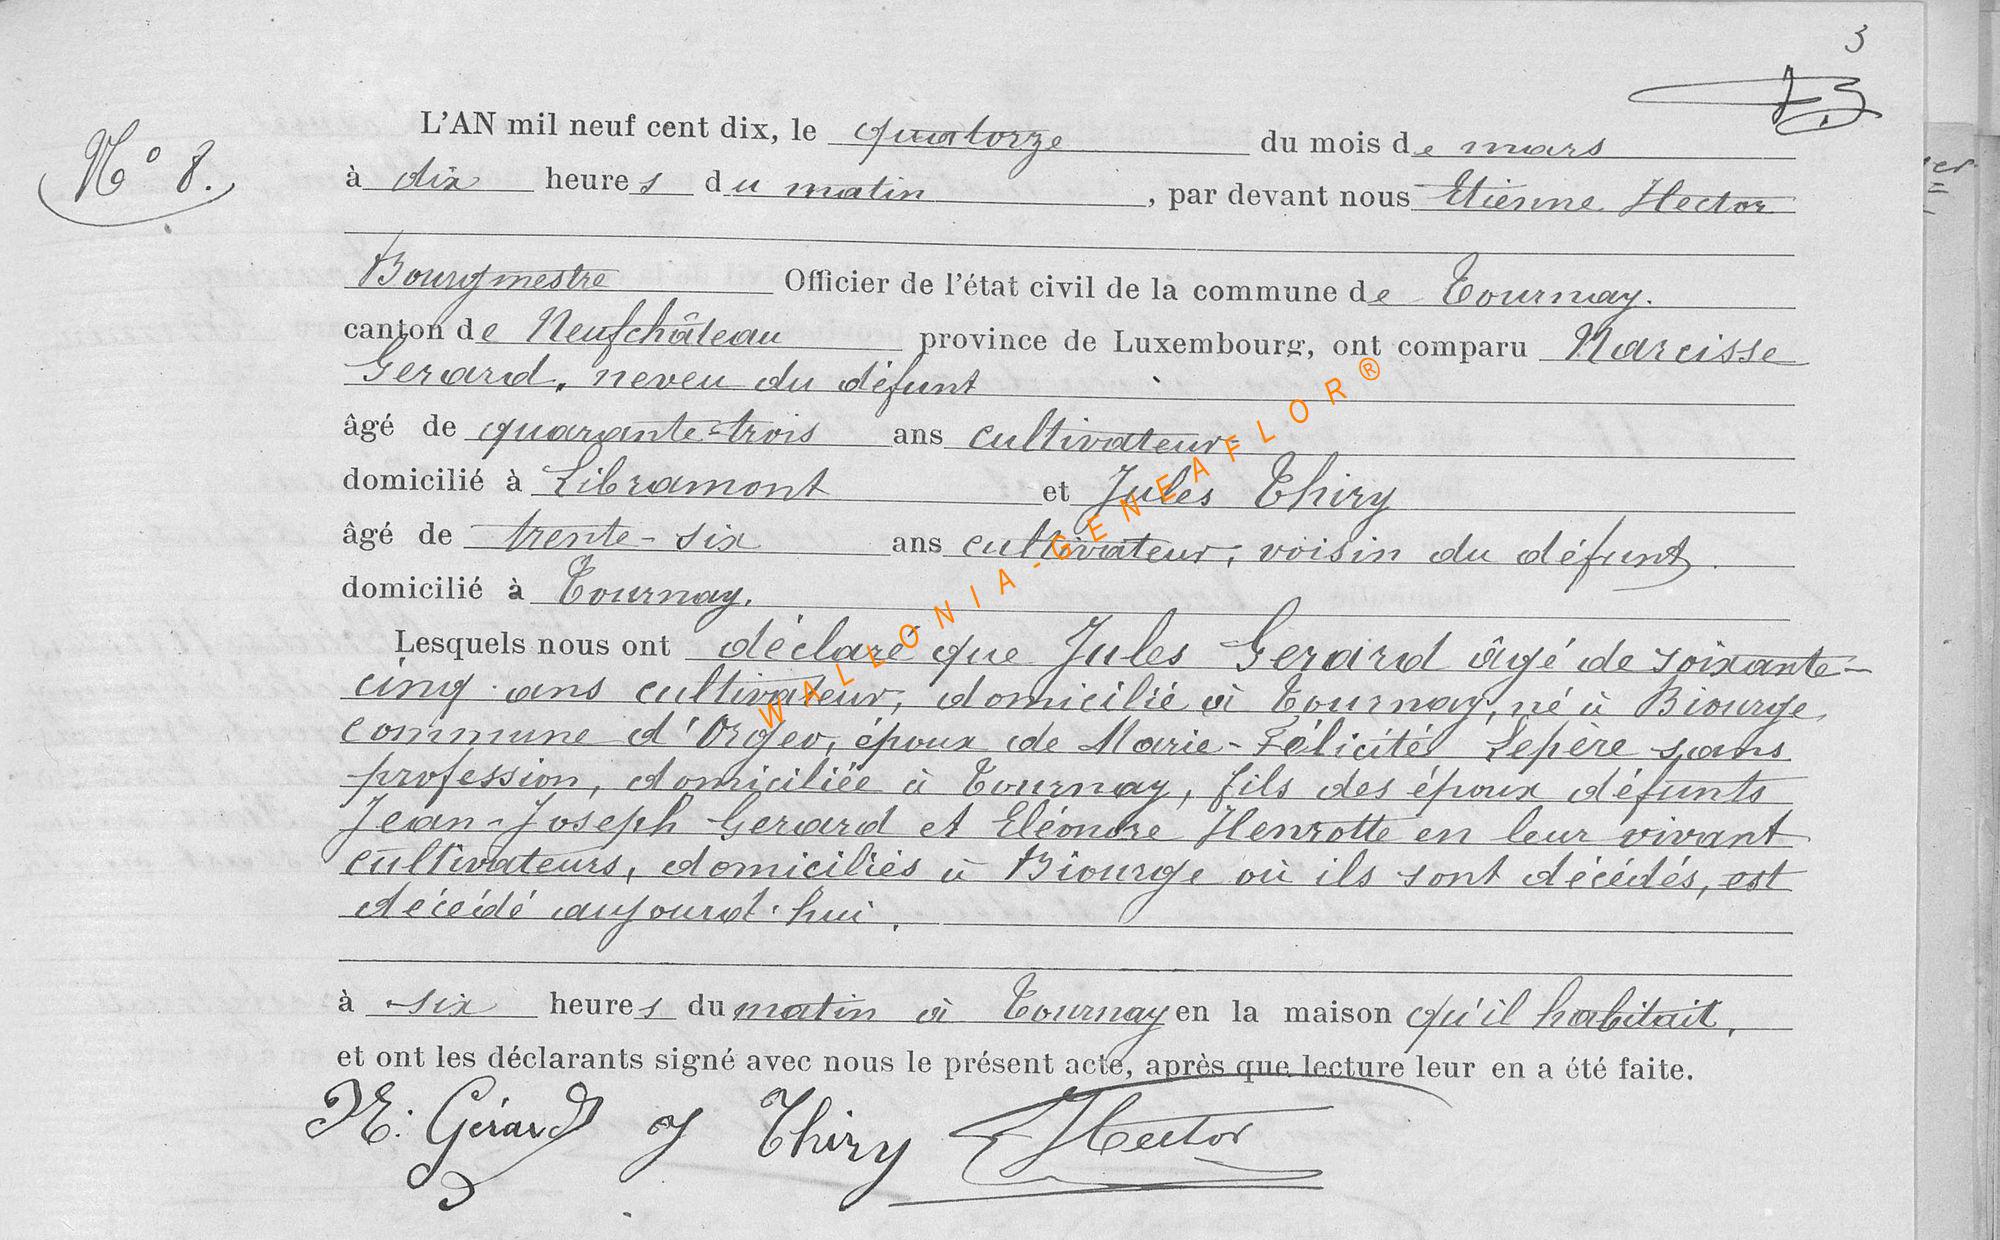 3
N° 8.
L'AN mil neuf cent dix, le quatorze du mois de mars
à dix heures du matin, par devant nous Etienne Hector
Bourgmestre Officier de l'état civil de la commune de Tournay.
canton de Neufchâteau province de Luxembourg, ont comparu Narcisse
Gerard, neveu du défunt
âgé de quarante-trois ans cultivateur
domicilié à Libramont et Jules Thiry
âgé de trente-six ans cultivateur, voisin du défunt.
domicilié à Tournay.
Lesquels nous ont déclaré que Jules Gerard âgé de soixante-
cinq ans cultivateur, domicilié à Tournay, né à Biourge,
commune d'Orgeo, époux de Marie-Félicité Lepère sans
profession, domiciliée à Tournay, fils des époux défunts
Jean-Joseph Gerard et Eléonore Henrotte en leur vivant
cultivateurs, domiciliés à Biourge où ils sont décédés, est
décédé aujourd'hui,
à six heures du matin à Tournay en la maison qu'il habitait,
et ont les déclarants signé avec nous le présent acte, après que lecture leur en a été faite.
N. Gérard J Thiry Hector
WALLONIA-GENEAFLOR®